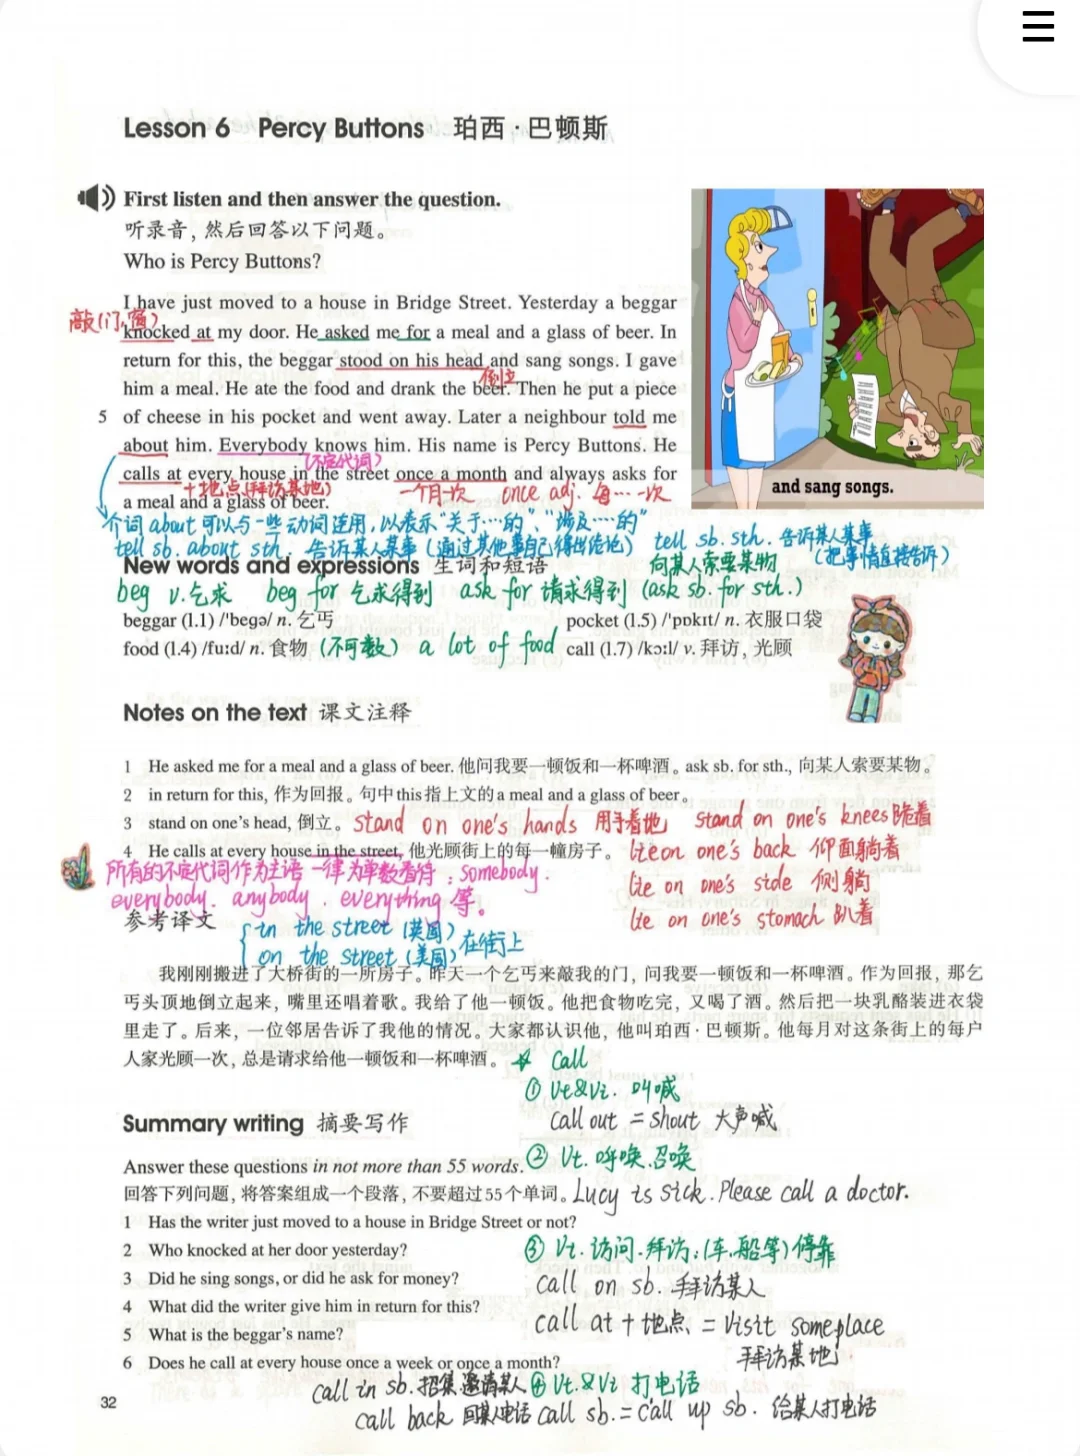 Lesson 6 Percy Buttons 珀西·巴顿斯
First listen and then answer the question.
听录音，然后回答以下问题。
Who is Percy Buttons?
I have just moved to a house in Bridge Street. Yesterday a beggar
敲(门,窗)
knocked at my door. He asked me for a meal and a glass of beer. In
return for this, the beggar stood on his head and sang songs. I gave
倒立
him a meal. He ate the food and drank the beer. Then he put a piece
5 of cheese in his pocket and went away. Later a neighbour told me
about him. Everybody knows him. His name is Percy Buttons. He
(不定代词)
calls at every house in the street once a month and always asks for
+地点(拜访某地) 一个月一次 once adj. 每…一次
a meal and a glass of beer.
and sang songs.
个词 about 可以与一些动词连用,以表示"关于…的"、"涉及…的"
tell sb. about sth. 告诉某人某事(通过其他事自己得出结论)
tell sb. sth. 告诉某人某事
(把事情直接告诉)
New words and expressions 生词和短语
向某人索要某物
beg v.乞求 beg for 乞求得到 ask for 请求得到 (ask sb. for sth.)
beggar (1.1) /'begə/ n. 乞丐
pocket (1.5) /'pɒkɪt/ n. 衣服口袋
food (1.4) /fuːd/ n. 食物 (不可数) a lot of food
call (1.7) /kɔːl/ v. 拜访, 光顾
Notes on the text 课文注释
1 He asked me for a meal and a glass of beer. 他问我要一顿饭和一杯啤酒。ask sb. for sth., 向某人索要某物。
2 in return for this, 作为回报。句中this指上文的a meal and a glass of beer。
3 stand on one's head, 倒立。stand on one's hands 用手着地 stand on one's knees 跪着
4 He calls at every house in the street, 他光顾街上的每一幢房子。lie on one's back 仰面躺着
所有的不定代词作为主语一律为单数看待：somebody.
lie on one's side 侧躺
everybody. anybody. everything 等。
lie on one's stomach 趴着
参考译文
in the street (英国)
on the street (美国) 在街上
我刚刚搬进了大桥街的一所房子。昨天一个乞丐来敲我的门，问我要一顿饭和一杯啤酒。作为回报，那乞
丐头顶地倒立起来，嘴里还唱着歌。我给了他一顿饭。他把食物吃完，又喝了酒。然后把一块乳酪装进衣袋
里走了。后来，一位邻居告诉了我他的情况。大家都认识他，他叫珀西·巴顿斯。他每月对这条街上的每户
人家光顾一次，总是请求给他一顿饭和一杯啤酒。
☆ call
① Vt&Vi. 叫喊
call out = shout 大声喊
Summary writing 摘要写作
Answer these questions in not more than 55 words.
② Vt. 呼唤.召唤
回答下列问题，将答案组成一个段落，不要超过55个单词。
Lucy is sick. Please call a doctor.
1 Has the writer just moved to a house in Bridge Street or not?
2 Who knocked at her door yesterday?
③ Vt. 访问.拜访;(车.船等)停靠
3 Did he sing songs, or did he ask for money?
call on sb. 拜访某人
4 What did the writer give him in return for this?
call at + 地点 = visit someplace
5 What is the beggar's name?
拜访某地
6 Does he call at every house once a week or once a month?
call in sb. 招集.邀请某人
④ Vt.&Vi 打电话
32
call back 回某人电话
call sb. = call up sb. 给某人打电话